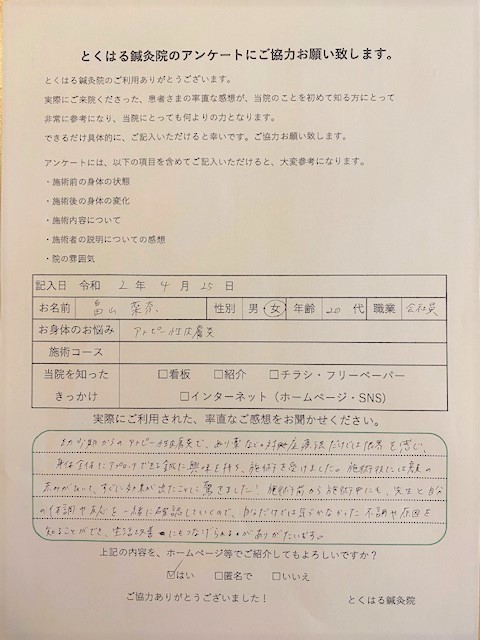 とくはる鍼灸院のアンケートにご協力お願い致します。
とくはる鍼灸院のご利用ありがとうございます。
実際にご来院くださった、患者さまの率直な感想が、当院のことを初めて知る方にとって
非常に参考になり、当院にとっても何よりの力となります。
できるだけ具体的に、ご記入いただけると幸いです。ご協力お願い致します。
アンケートには、以下の項目を含めてご記入いただけると、大変参考になります。
・施術前の身体の状態
・施術後の身体の変化
・施術内容について
・施術者の説明についての感想
・院の雰囲気
記入日 令和 2 年 4 月 25 日
お名前 畠山 梨奈 性別 男・女 年齢 20 代 職業 会社員
お身体のお悩み アトピー性皮膚炎
施術コース
当院を知った □看板 □紹介 □チラシ・フリーペーパー
きっかけ □インターネット(ホームページ・SNS)
実際にご利用された、率直なご感想をお聞かせください。
幼少期からのアトピー性皮膚炎で、塗り薬などの対症療法だけでは限界を感じ、
身体全体にアプローチできる鍼に興味を持ち、施術を受けました。施術後には顔の
赤みがひいて、すぐに効果が出たことに驚きました!施術前から施術中にも、先生と自分
の体調や気を一緒に確認していくので、自分だけでは気づかなかった不調や原因を
知ることができ、生活改善にもつなげられるのがありがたいです。
上記の内容を、ホームページ等でご紹介してもよろしいですか?
☑はい □匿名で □いいえ
ご協力ありがとうございました! とくはる鍼灸院